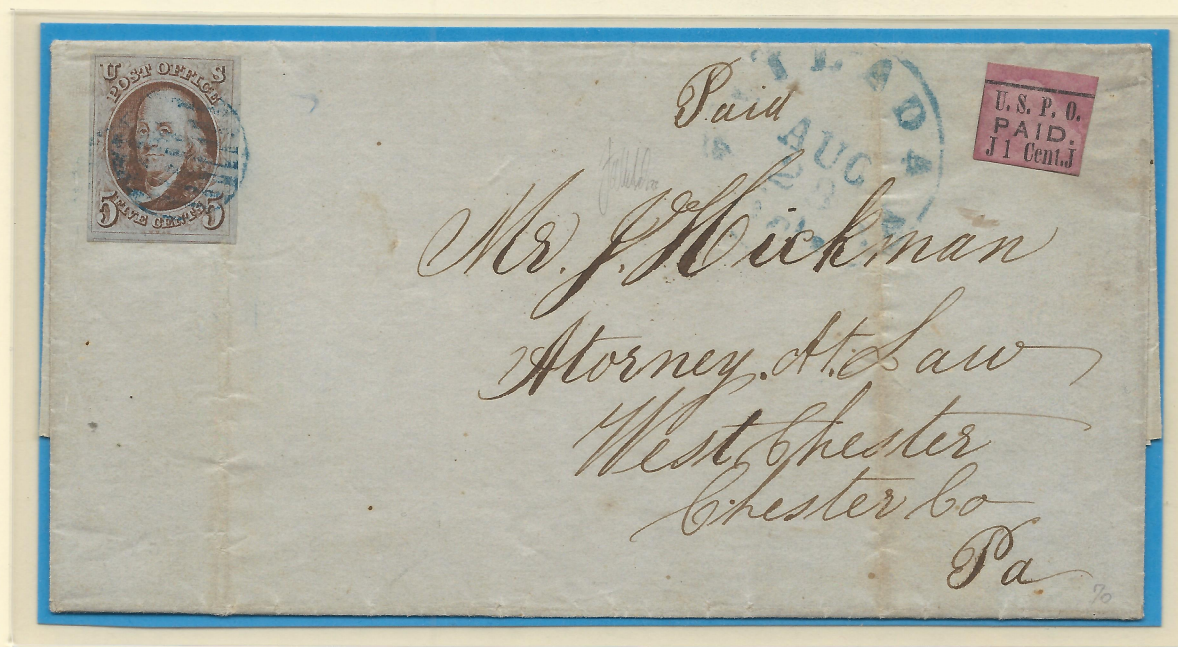 U S
POST OFFICE
FIVE CENTS
5 5
Paid
LADA
AUG
U. S. P. O.
PAID.
J 1 Cent. J
Mr. J. Hickman
Attorney. At. Law
West Chester
Chester Co
Pa